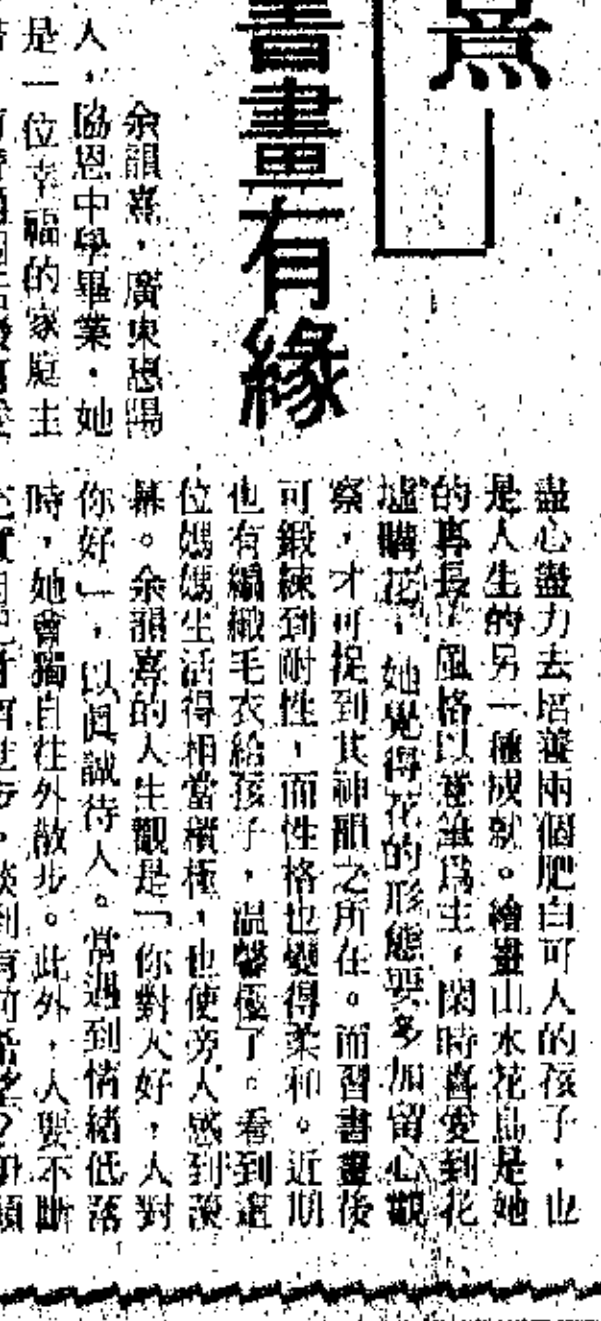 熹
書畫有緣
余韻熹，廣東惠陽
人，協恩中學畢業。她
是一位幸福的家庭主
盡心盡力去培養兩個肥白可人的孩子，也
是人生的另一種成就。繪畫山水花鳥是她
的專長，風格以逸筆為主，閑時喜愛到花
墟購花，她覺得花的形態要多加留心觀
察，才可捉到其神韻之所在。而習書畫後
可鍛練到耐性，而性格也變得柔和。近期
也有編織毛衣給孩子，溫馨極了。看到這
位媽媽生活得相當積極，也使旁人感到羨
慕。余韻熹的人生觀是「你對人好，人對
你好」，以真誠待人。當遇到情緒低落
時，她會獨自往外散步。此外，人要不斷